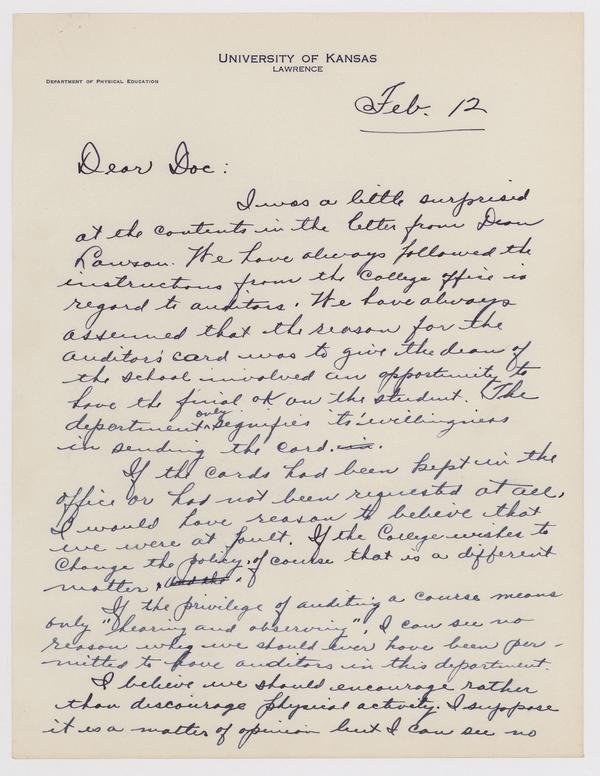 UNIVERSITY OF KANSAS
LAWRENCE
DEPARTMENT OF PHYSICAL EDUCATION
Feb. 12
Dear Doc:
I was a little surprised
at the contents in the letter from Dean
Lawson. We have always followed the
instructions from the College office in
regard to auditors. We have always
assumed that the reason for the
auditor's card was to give the dean of
the school involved an opportunity to
have the final OK on the student. The
department only signifies its' willingness
in sending the card. in.
If the cards had been kept in the
office or had not been requested at all,
I would have reason to believe that
we were at fault. If the College wishes to
change the policy, of course that is a different
matter. and the
If the privilege of auditing a course means
only "hearing and observing", I can see no
reason why we should ever have been per-
mitted to have auditors in this department.
I believe we should encourage rather
than discourage physical activity. I suppose
it is a matter of opinion but I can see no